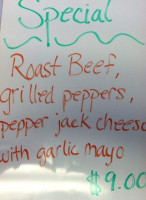 Special
Roast Beef,
grilled peppers,
pepper jack cheese
with garlic mayo
$9.00